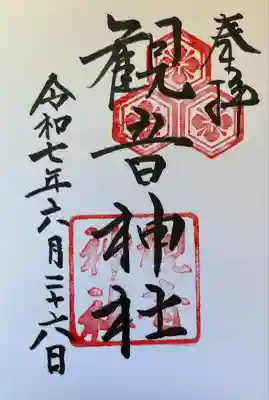 奉拝
観音神社
令和七年六月二十六日